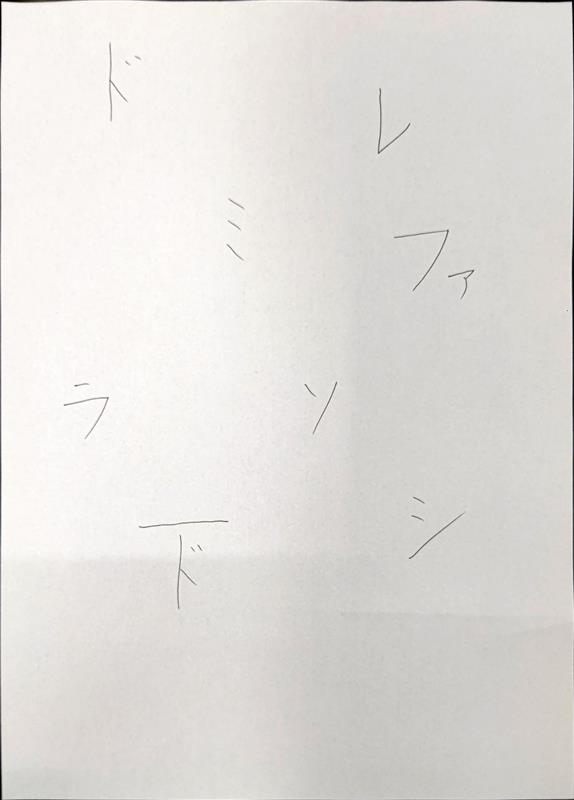 ド
レ
ミ
ファ
ラ ソ
シ
ド